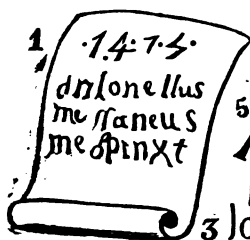 1
·1·4·7·5·
antonellus
me ssaneus
me pinxt
5
3